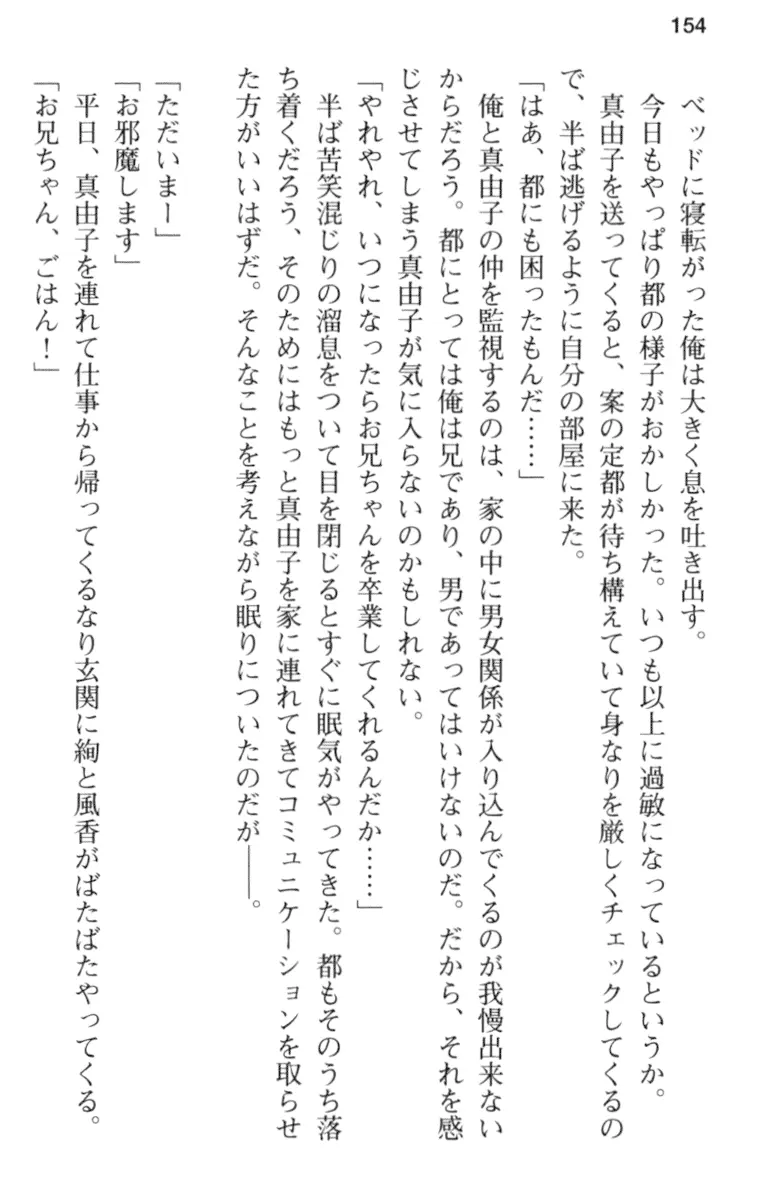 154
ベッドに寝転がった俺は大きく息を吐き出す。
今日もやっぱり都の様子がおかしかった。いつも以上に過敏になっているというか。
真由子を送ってくると、案の定都が待ち構えていて身なりを厳しくチェックしてくるの
で、半ば逃げるように自分の部屋に来た。
「はあ、都にも困ったもんだ……」
俺と真由子の仲を監視するのは、家の中に男女関係が入り込んでくるのが我慢出来ない
からだろう。都にとっては俺は兄であり、男であってはいけないのだ。だから、それを感
じさせてしまう真由子が気に入らないのかもしれない。
「やれやれ、いつになったらお兄ちゃんを卒業してくれるんだか……」
半ば苦笑混じりの溜息をついて目を閉じるとすぐに眠気がやってきた。都もそのうち落
ち着くだろう、そのためにはもっと真由子を家に連れてきてコミュニケーションを取らせ
た方がいいはずだ。そんなことを考えながら眠りについたのだが――。
「ただいまー」
「お邪魔します」
平日、真由子を連れて仕事から帰ってくるなり玄関に絢と風香がばたばたやってくる。
「お兄ちゃん、ごはん！」